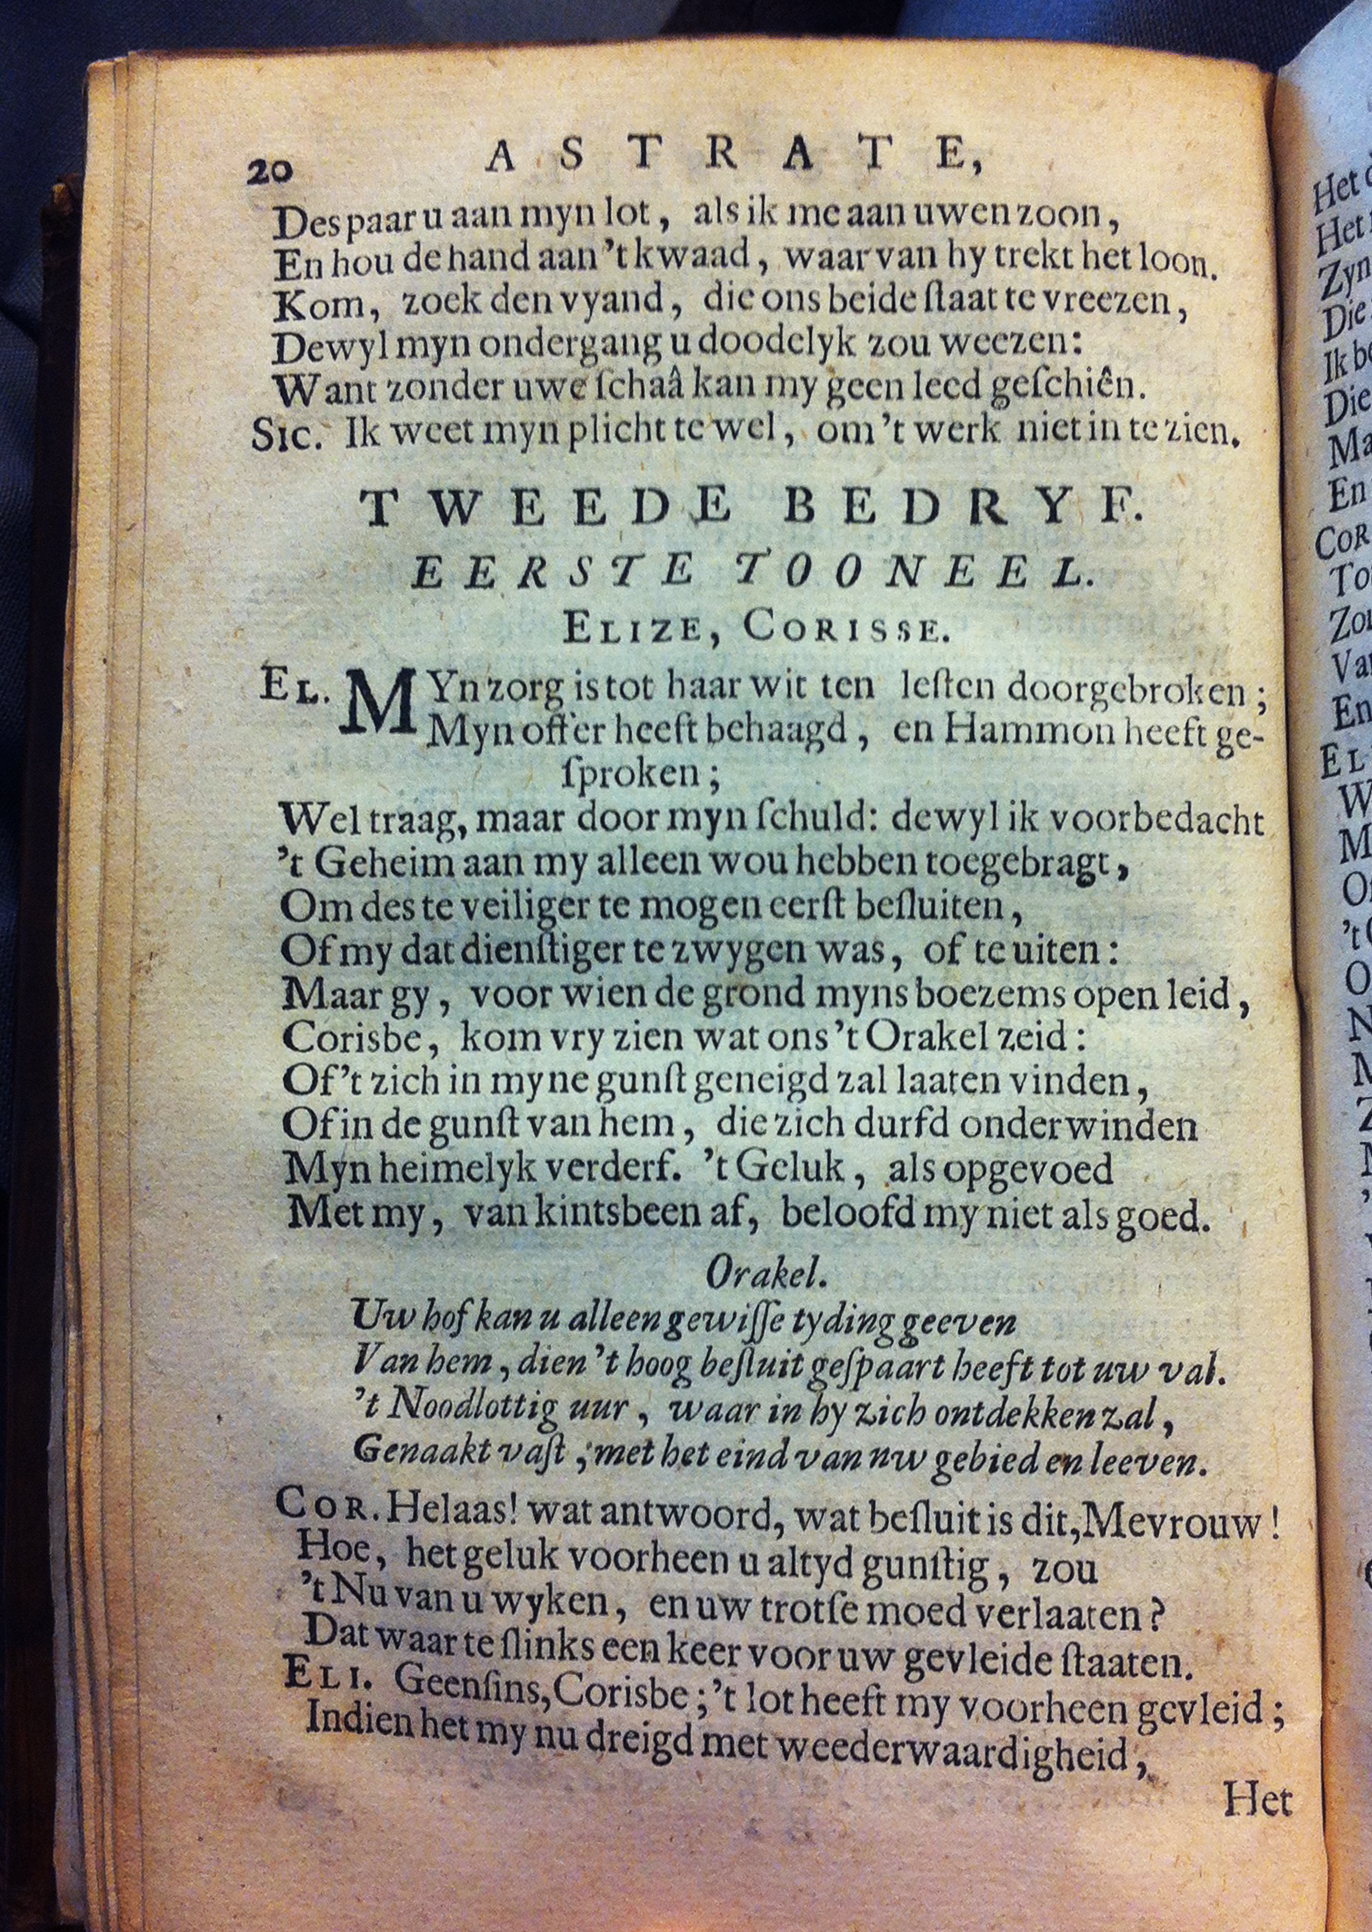 20 ASTRATE,
Des paar u aan myn lot, als ik me aan uwen zoon,
En hou de hand aan 't kwaad, waar van hy trekt het loon.
Kom, zoek den vyand, die ons beide ſtaat te vreezen,
Dewyl myn ondergang u doodelyk zou weezen:
Want zonder uwe ſchaâ kan my geen leed geſchiên.
SIC. Ik weet myn plicht te wel, om 't werk niet in te zien.
TWEEDE BEDRYF.
EERSTE TOONEEL.
ELIZE, CORISSE.
EL. MYn zorg is tot haar wit ten leſten doorgebroken;
Myn offer heeft behaagd, en Hammon heeft ge-
ſproken;
Wel traag, maar door myn ſchuld: dewyl ik voorbedacht
't Geheim aan my alleen wou hebben toegebragt,
Om des te veiliger te mogen eerſt beſluiten,
Of my dat dienſtiger te zwygen was, of te uiten:
Maar gy, voor wien de grond myns boezems open leid,
Corisbe, kom vry zien wat ons 't Orakel zeid:
Of 't zich in myne gunſt geneigd zal laaten vinden,
Of in de gunſt van hem, die zich durfd onderwinden
Myn heimelyk verderf. 't Geluk, als opgevoed
Met my, van kintsbeen af, beloofd my niet als goed.
Orakel.
Uw hof kan u alleen gewiſſe tyding geeven
Van hem, dien 't hoog beſluit geſpaart heeft tot uw val.
't Noodlottig uur, waar in hy zich ontdekken zal,
Genaakt vaſt, met het eind van nw gebied en leeven.
COR. Helaas! wat antwoord, wat beſluit is dit, Mevrouw!
Hoe, het geluk voorheen u altyd gunſtig, zou
't Nu van u wyken, en uw trotſe moed verlaaten?
Dat waar te ſlinks een keer voor uw gevleide ſtaaten.
ELI. Geenſins, Corisbe; 't lot heeft my voorheen gevleid;
Indien het my nu dreigd met weederwaardigheid,
Het
Het
Het
Zyn
Die
Ik
Die
En
COR
EL